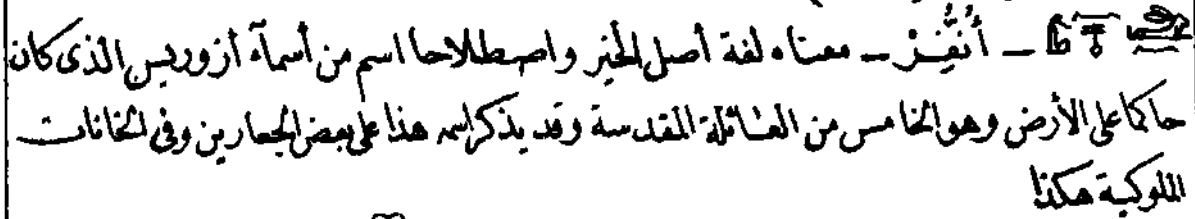 — أُنفِّرُ — معناه لغة أصل الخير واصطلاحا اسم من أسماء أزوريس الذى كان
حاكما على الأرض وهو الخامس من العائلة المقدسة وقد يذكر اسمه هذا على بعض الجعارين وفى الخانات
الملوكية هكذا